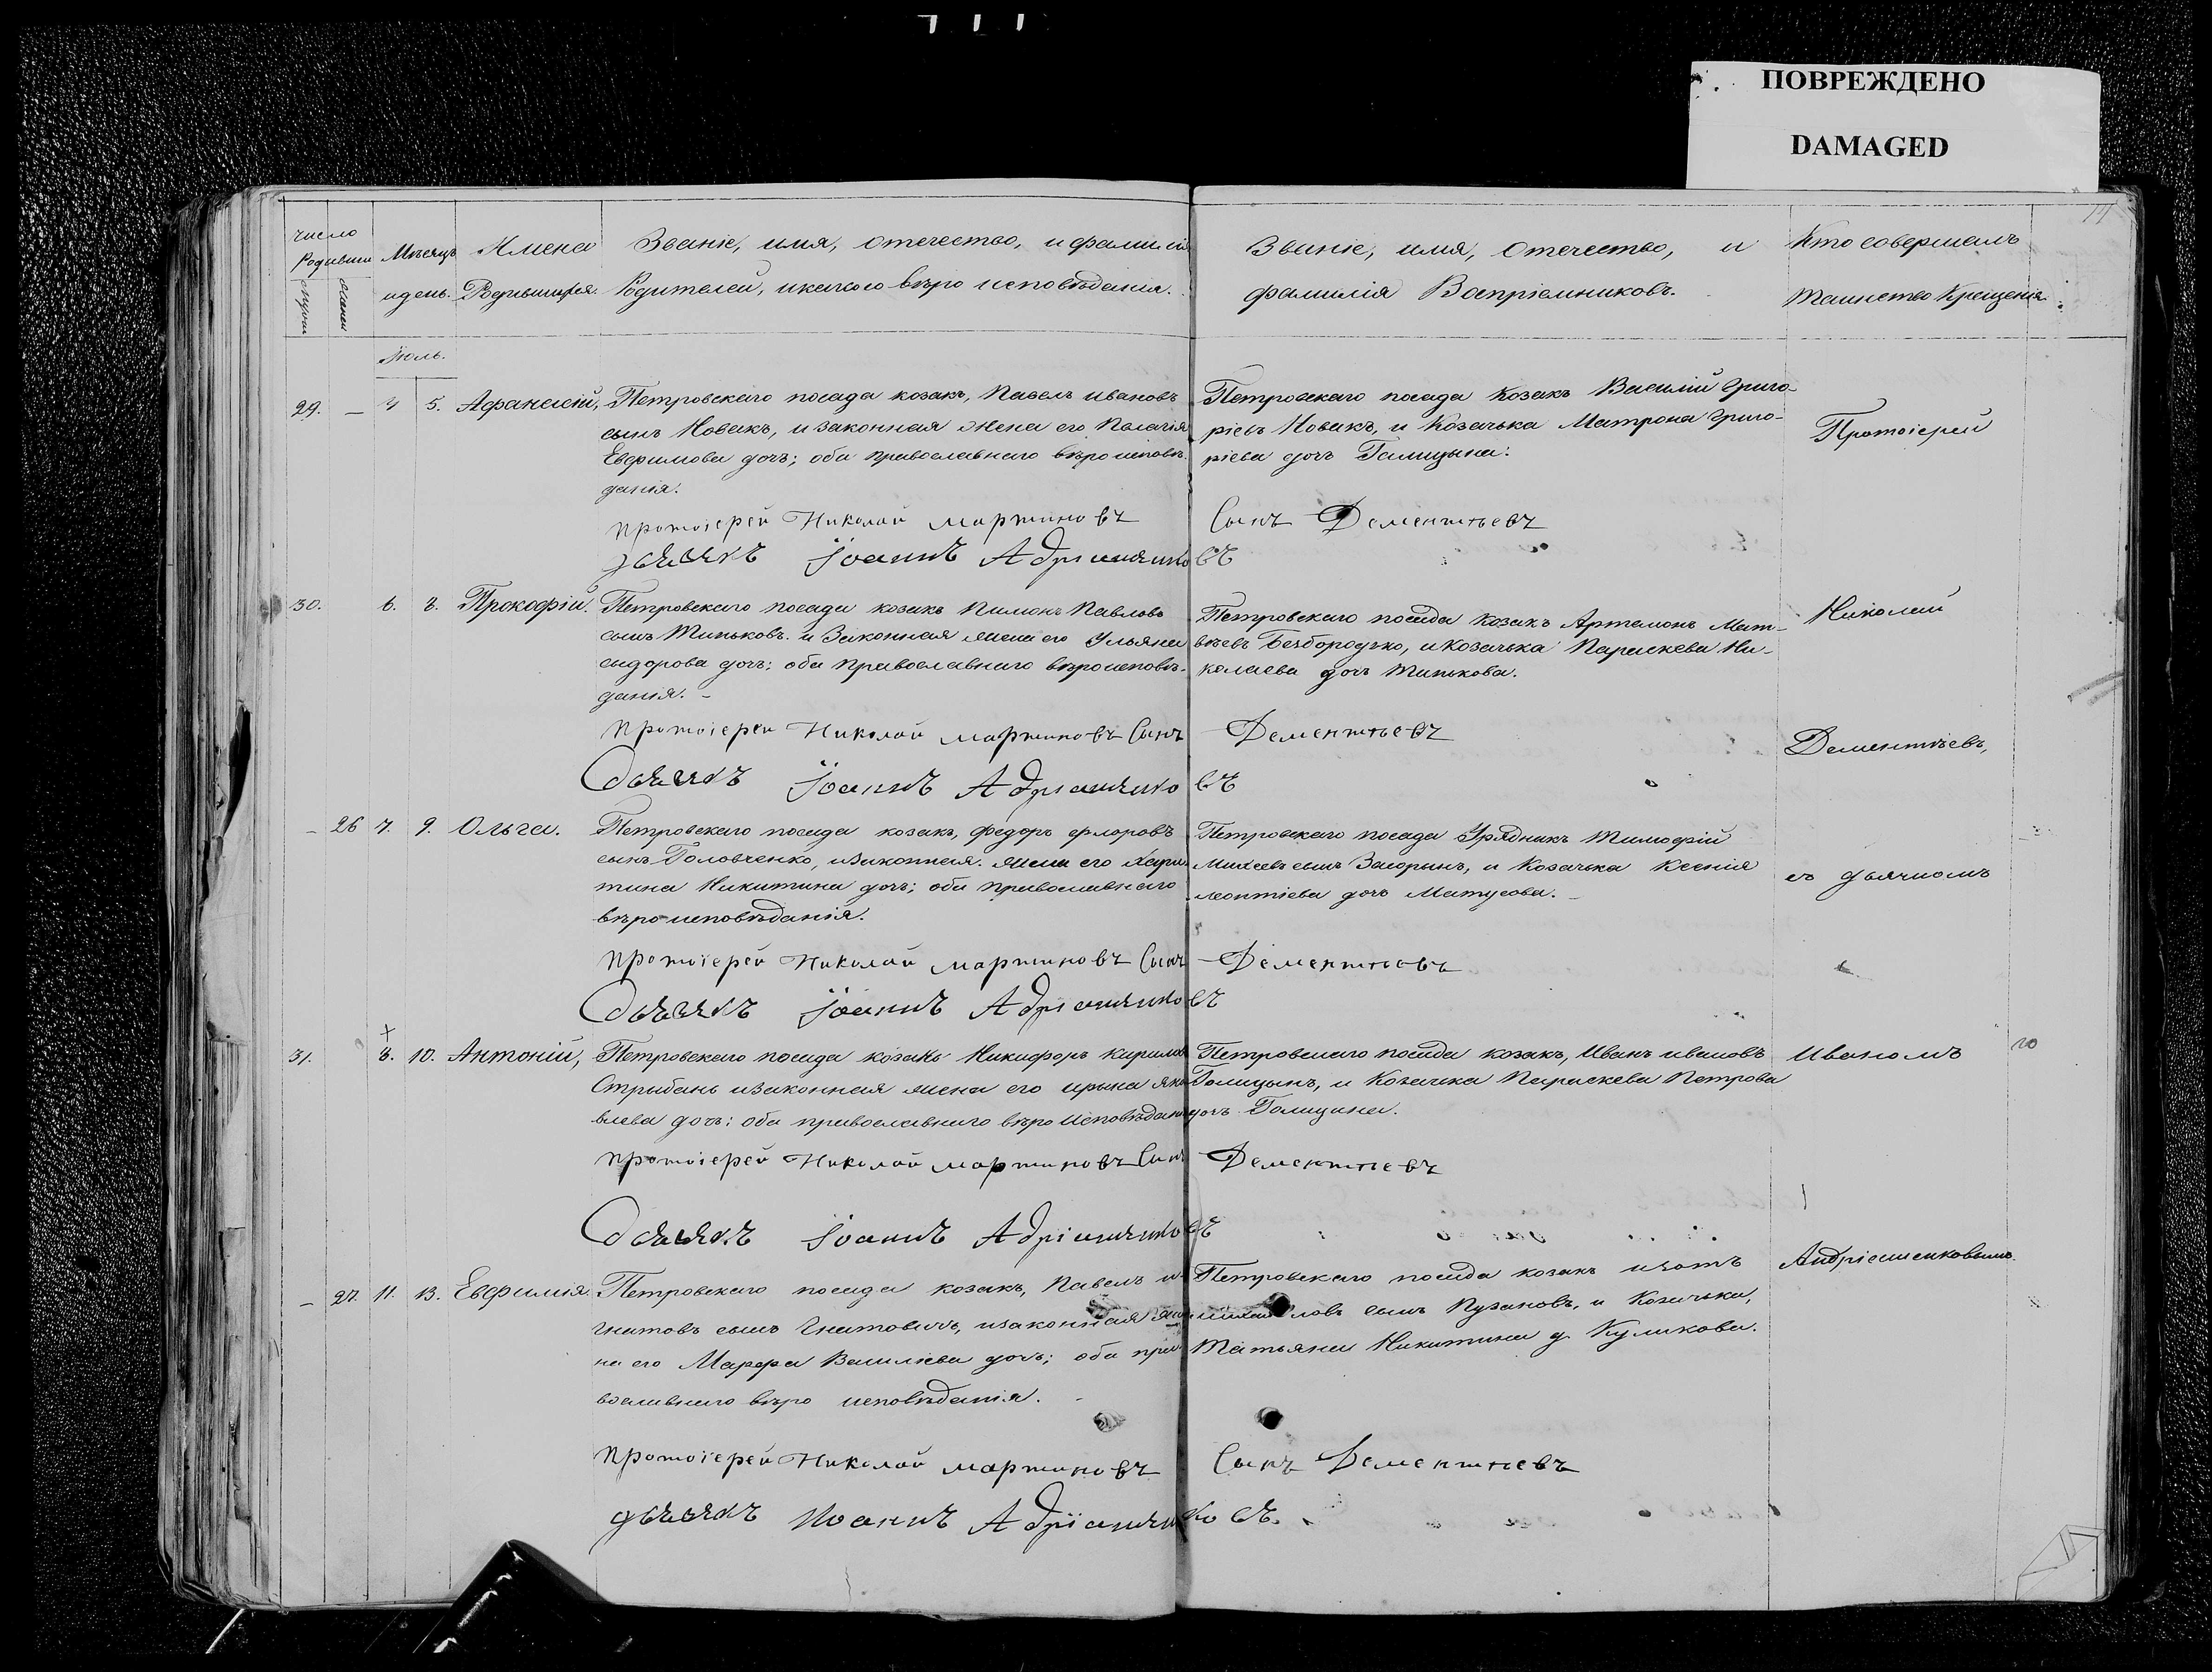 ПОВРЕЖДЕНО
DAMAGED
число Родивши
Мѣсяцъ и день.
Имена Родившихся.
Званіе, имя, отечество, и фамилія
Родителей, и какого вѣро исповѣданія.
Званіе, имя, Отечество, и
фамилія Воспріемниковъ.
Кто совершалъ
Таинство Крещенія.
Іюль.
29. — 5. Афанасій, Петровскаго посада козакъ, Павелъ Ивановъ
сынъ Новакъ, и законная жена его Пелагія
Евфимова дочь; оба православнаго вѣро исповѣ-
данія.
Петровскаго посада козакъ Василій Григо-
ріевъ Новакъ, и Козачька Матрона Григо-
ріева дочь Галицына.
Протоіерей
протоіерей Николай мартиновъ Сынъ Дементьевъ
30. 6. 8. Прокофій. Петровскаго посада козакъ Пимонъ Павловъ
сынъ Тиньковъ. и Законная жена его Ульяна
сидорова дочь; оба православнаго вѣроисповѣ-
данія. -
Петровскаго посада козакъ Артемонъ Мат-
вѣевъ Безбородько, и козачька Параскева Ни-
колаева дочь Тинькова.
Николай
протоіерей Николай мартиновъ Сынъ Дементьевъ
Дементьевъ,
— 26 7. 9. Ольга. Петровскаго посада козакъ, федоръ флоровъ
сынъ Головченко, изаконная. жена его Хари-
тина Никитина дочь; оба православнаго
вѣро исповѣданія.
Петровскаго посада Урядникъ Тимофій
Михеевъ сынъ Загорынъ, и Козачька Ксенія
леонтіева дочь Матусова. -
съ дьячкомъ
протоіерей Николай мартиновъ Сынъ Дементьевъ
31. 8. 10. Антоній, Петровскаго посада козакъ Никифоръ Кирилов
Стрибань изаконная жена его ирина яко
влева дочь; оба православнаго вѣро исповѣдан
Петровскаго посада козакъ, Иванъ ивановъ
Голицынъ, и Козачка Параскева Петрова
дочь Голицина.
Иваномъ
протоіерей Николай мартиновъ Сынъ Дементьевъ
— 27. 11. 13. Евфимія Петровскаго посада козакъ, Павелъ и-
гнатовъ сынъ Гнатовичъ, изаконная же
на его Марфа Василіева дочь; оба пра
вославнаго вѣро исповѣданія. -
Петровскаго посада козакъ изотъ
ловъ сынъ Пузановъ, и Козачька,
Татьяна Никитина д. Куликова.
Андріешенковымъ.
протоіерей Николай мартиновъ Сынъ Дементьевъ